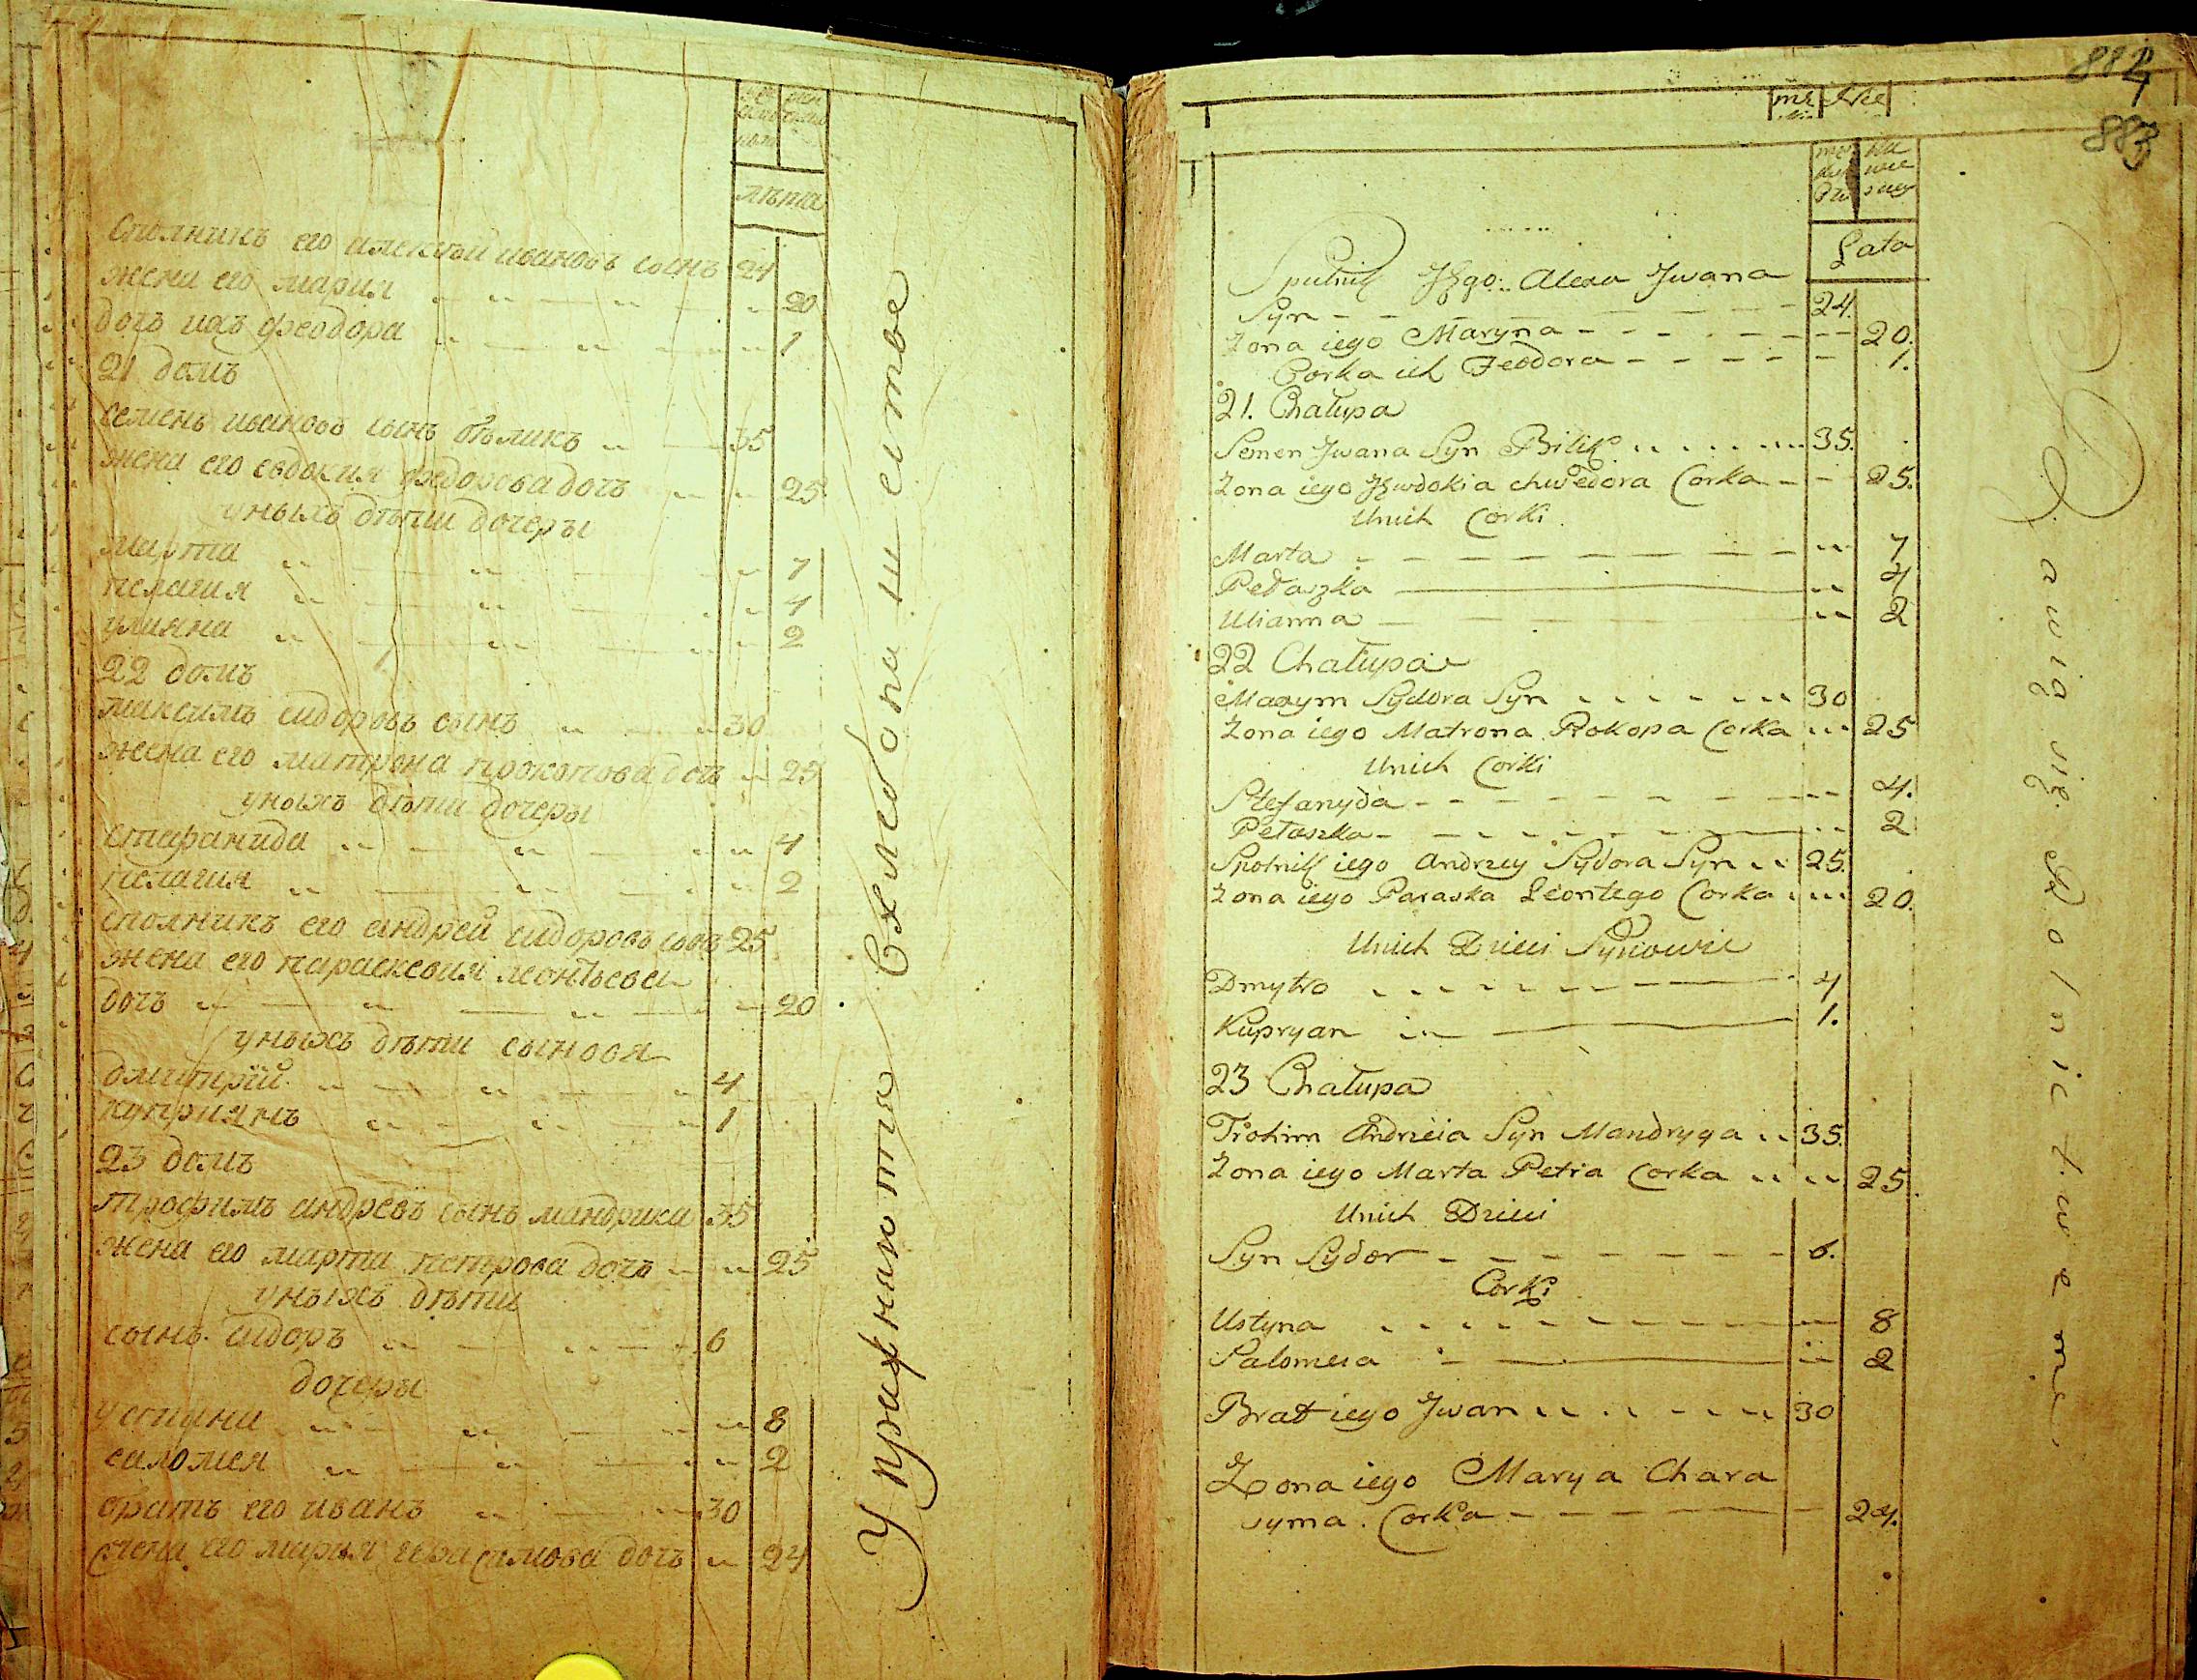 лѣта
Сполникъ его алексѣй ивановъ сынъ 24
жена его мария 20
дочь ихъ феодора 1
21 домъ
семенъ ивановъ сынъ бѣликъ 35
жена его евдокия федорова дочь 25
уныхъ дѣти дочеры
марта 7
пелагия 4
улияна 2
22 домъ
максимъ сидоровъ сынъ 30
жена его матрона прокопова дочь 25
уныхъ дѣти дочеры
стефанида 4
пелагия 2
сполникъ его андрей сидоровъ сынъ 25
жена его параскевия леонтьева
дочь 20
уныхъ дѣти сыновя
дмитрий 4
куприянъ 1
23 домъ
трофимъ андреевъ сынъ мандрика 35
жена его марта петрова дочь 25
уныхъ дѣти
сынъ сидоръ 6
дочеры
устина 8
саломея 2
братъ его иванъ 30
жена его мария герасимова дочь 24
Упражняются Вхлебопашестве
882
883
Lata
Spulnik Jego Alexa Jwana
Syn 24.
Zona iego Maryna 20.
Corka ich Feodora 1.
21. Chałupa
Semen Jwana Syn Bilik 35.
Zona iego Jewdokia chwedora Corka 25.
Unich Corki
Marta 7
Pełaszka 4
Ulianna 2
22 Chałupa
Maxym Sydora Syn 30
Zona iego Matrona Prokopa Corka 25
Unich Corki
Stefanyda 4.
Pełaszka 2
Spolnik iego Andrzey Sydora Syn 25.
Zona iego Paraska Leontego Corka 20.
Unich Dzieci Synowie
Dmytro 4
Kupryan 1.
23 Chałupa
Trohim Andrzeia Syn Mandryga 35.
Zona iego Marta Petra Corka 25.
Unich Dzieci
Syn Sydor 6.
Corki
Ustyna 8
Salomeia 2
Brat iego Jwan 30
Zona iego Marya Chara
syma Corka 24.
Bawią się Rolnictwem